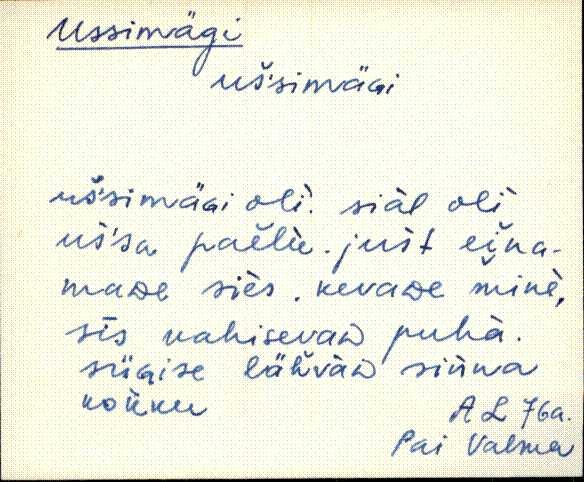 Ussimägi
uš̀simäɢi
uš̀simäɢi olì. siàl olì
uš̀sa paĕlù. jušt eĭna-
maᴅe siès. kevaᴅe minè,
sīs vahisevaᴅ puhà.
süɢise lähvàᴅ sinna
kokku
AL 76a.
Pai Valma